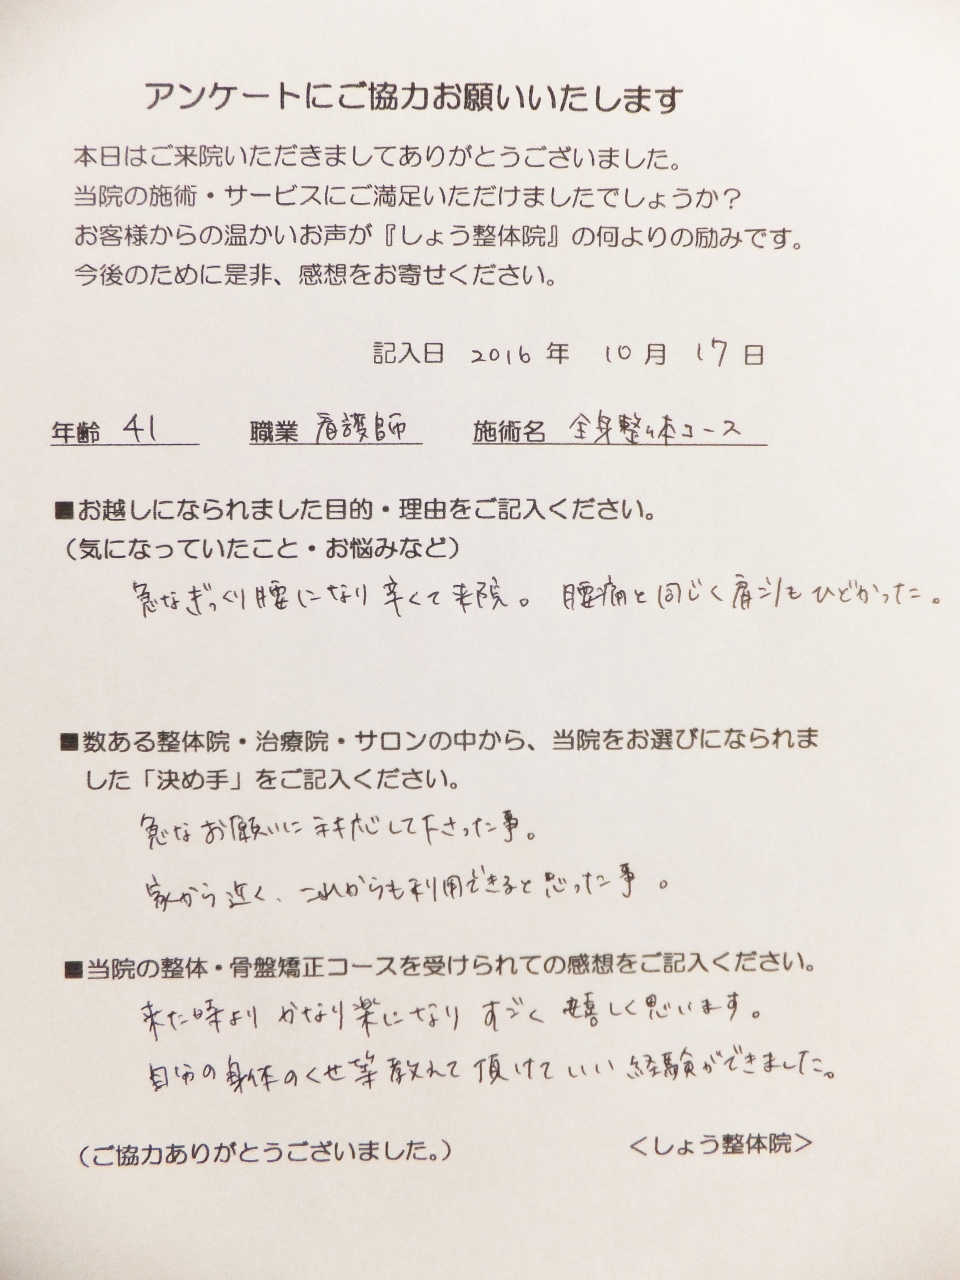 アンケートにご協力お願いいたします
本日はご来院いただきましてありがとうございました。
当院の施術・サービスにご満足いただけましたでしょうか？
お客様からの温かいお声が『しょう整体院』の何よりの励みです。
今後のために是非、感想をお寄せください。
記入日 2016 年 10 月 17 日
年齢 41 職業 看護師 施術名 全身整体コース
■お越しになられました目的・理由をご記入ください。
（気になっていたこと・お悩みなど）
急なぎっくり腰になり辛くて来院。 腰痛と同じく肩こりもひどかった。
■数ある整体院・治療院・サロンの中から、当院をお選びになられま
した「決め手」をご記入ください。
急なお願いに対応して下さった事。
家から近く、これからも利用できると思った事。
■当院の整体・骨盤矯正コースを受けられての感想をご記入ください。
来た時よりかなり楽になりすごく嬉しく思います。
自分の身体のくせ等教えて頂けていい経験ができました。
（ご協力ありがとうございました。） ＜しょう整体院＞